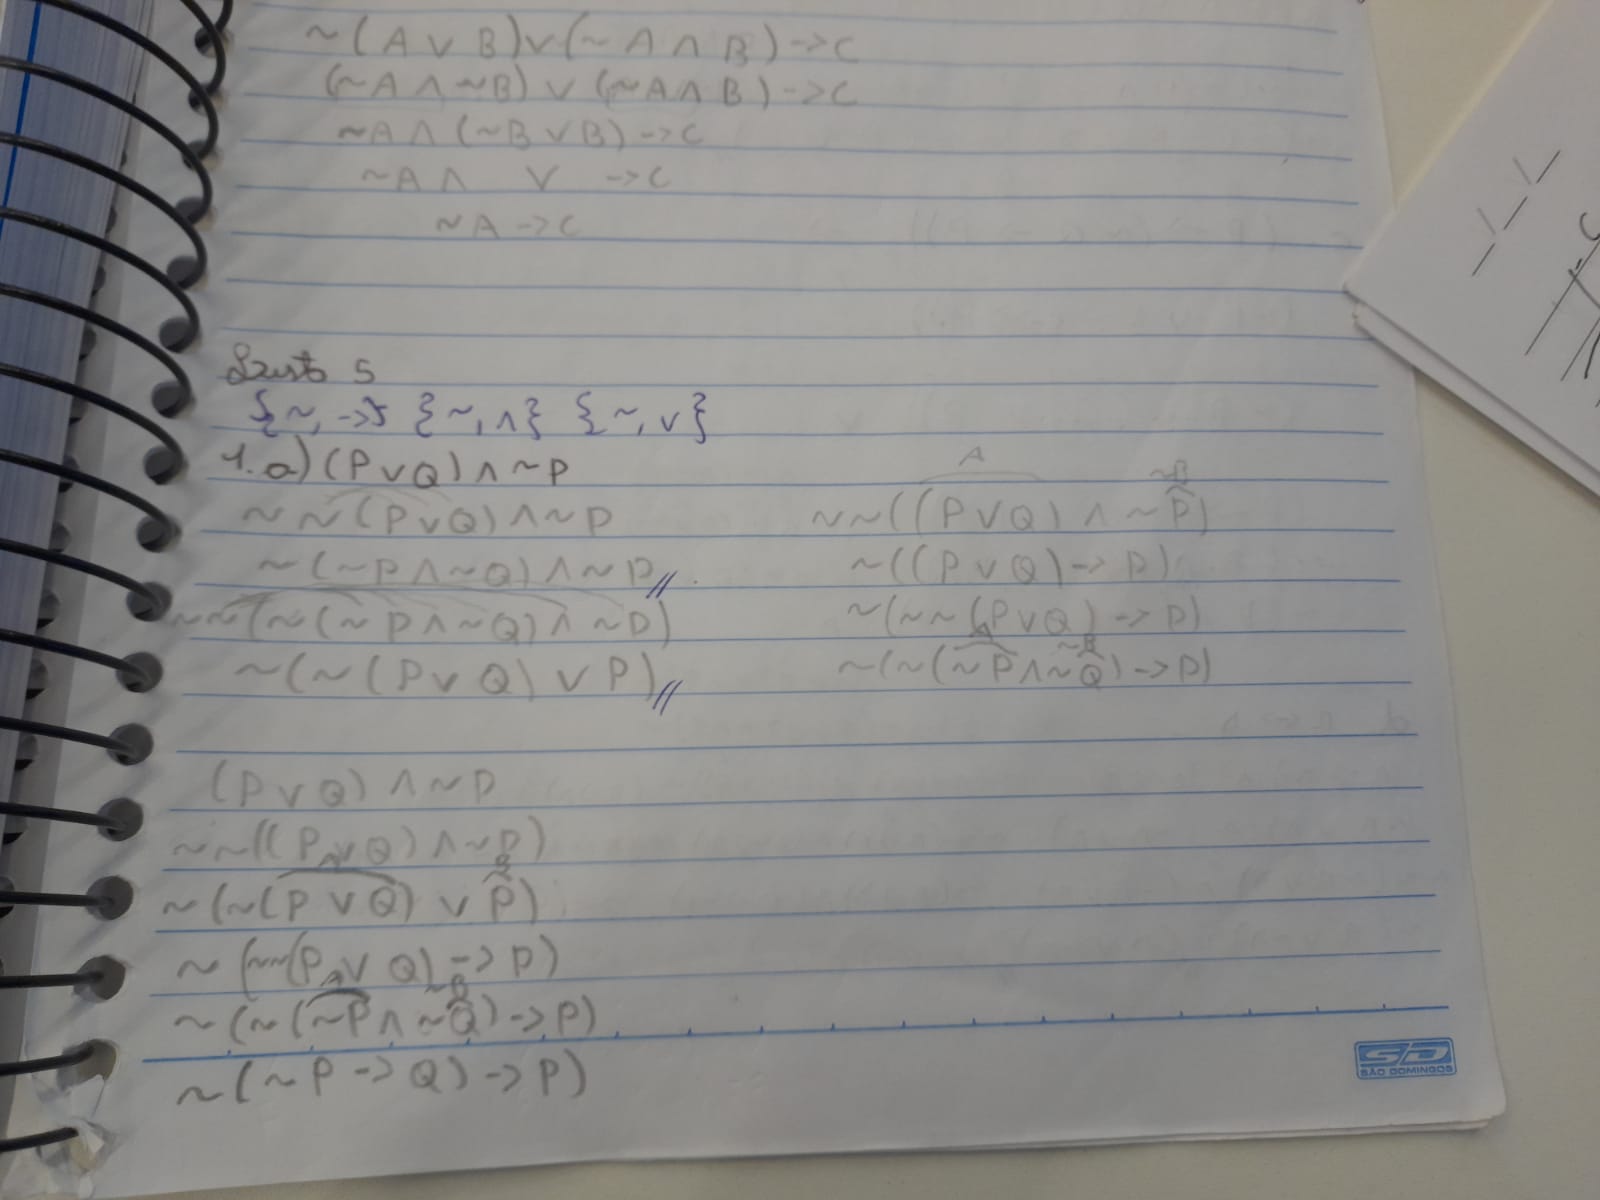 ~(A ∨ B) ∨ (~A ∧ B) -> C
(~A ∧ ~B) ∨ (~A ∧ B) -> C
~A ∧ (~B ∨ B) -> C
~A ∧ V -> C
~A -> C
5
{~, ->} {~, ∧} {~, ∨}
1. a) (P ∨ Q) ∧ ~P
~~(P ∨ Q) ∧ ~P
~(~P ∧ ~Q) ∧ ~P //
~~(~(~P ∧ ~Q) ∧ ~P)
~(~(P ∨ Q) ∨ P) //
A ~B
~~((P ∨ Q) ∧ ~P)
~((P ∨ Q) -> P)
~(~~(P ∨ Q) -> P)
A ~B
~(~(~P ∧ ~Q) -> P)
(P ∨ Q) ∧ ~P
~~((P ∨ Q) ∧ ~P)
A B
~(~(P ∨ Q) ∨ P)
~(~~(P ∨ Q) -> P)
A ~B
~(~(~P ∧ ~Q) -> P)
~(~P -> Q) -> P)
SD
SÃO DOMINGOS